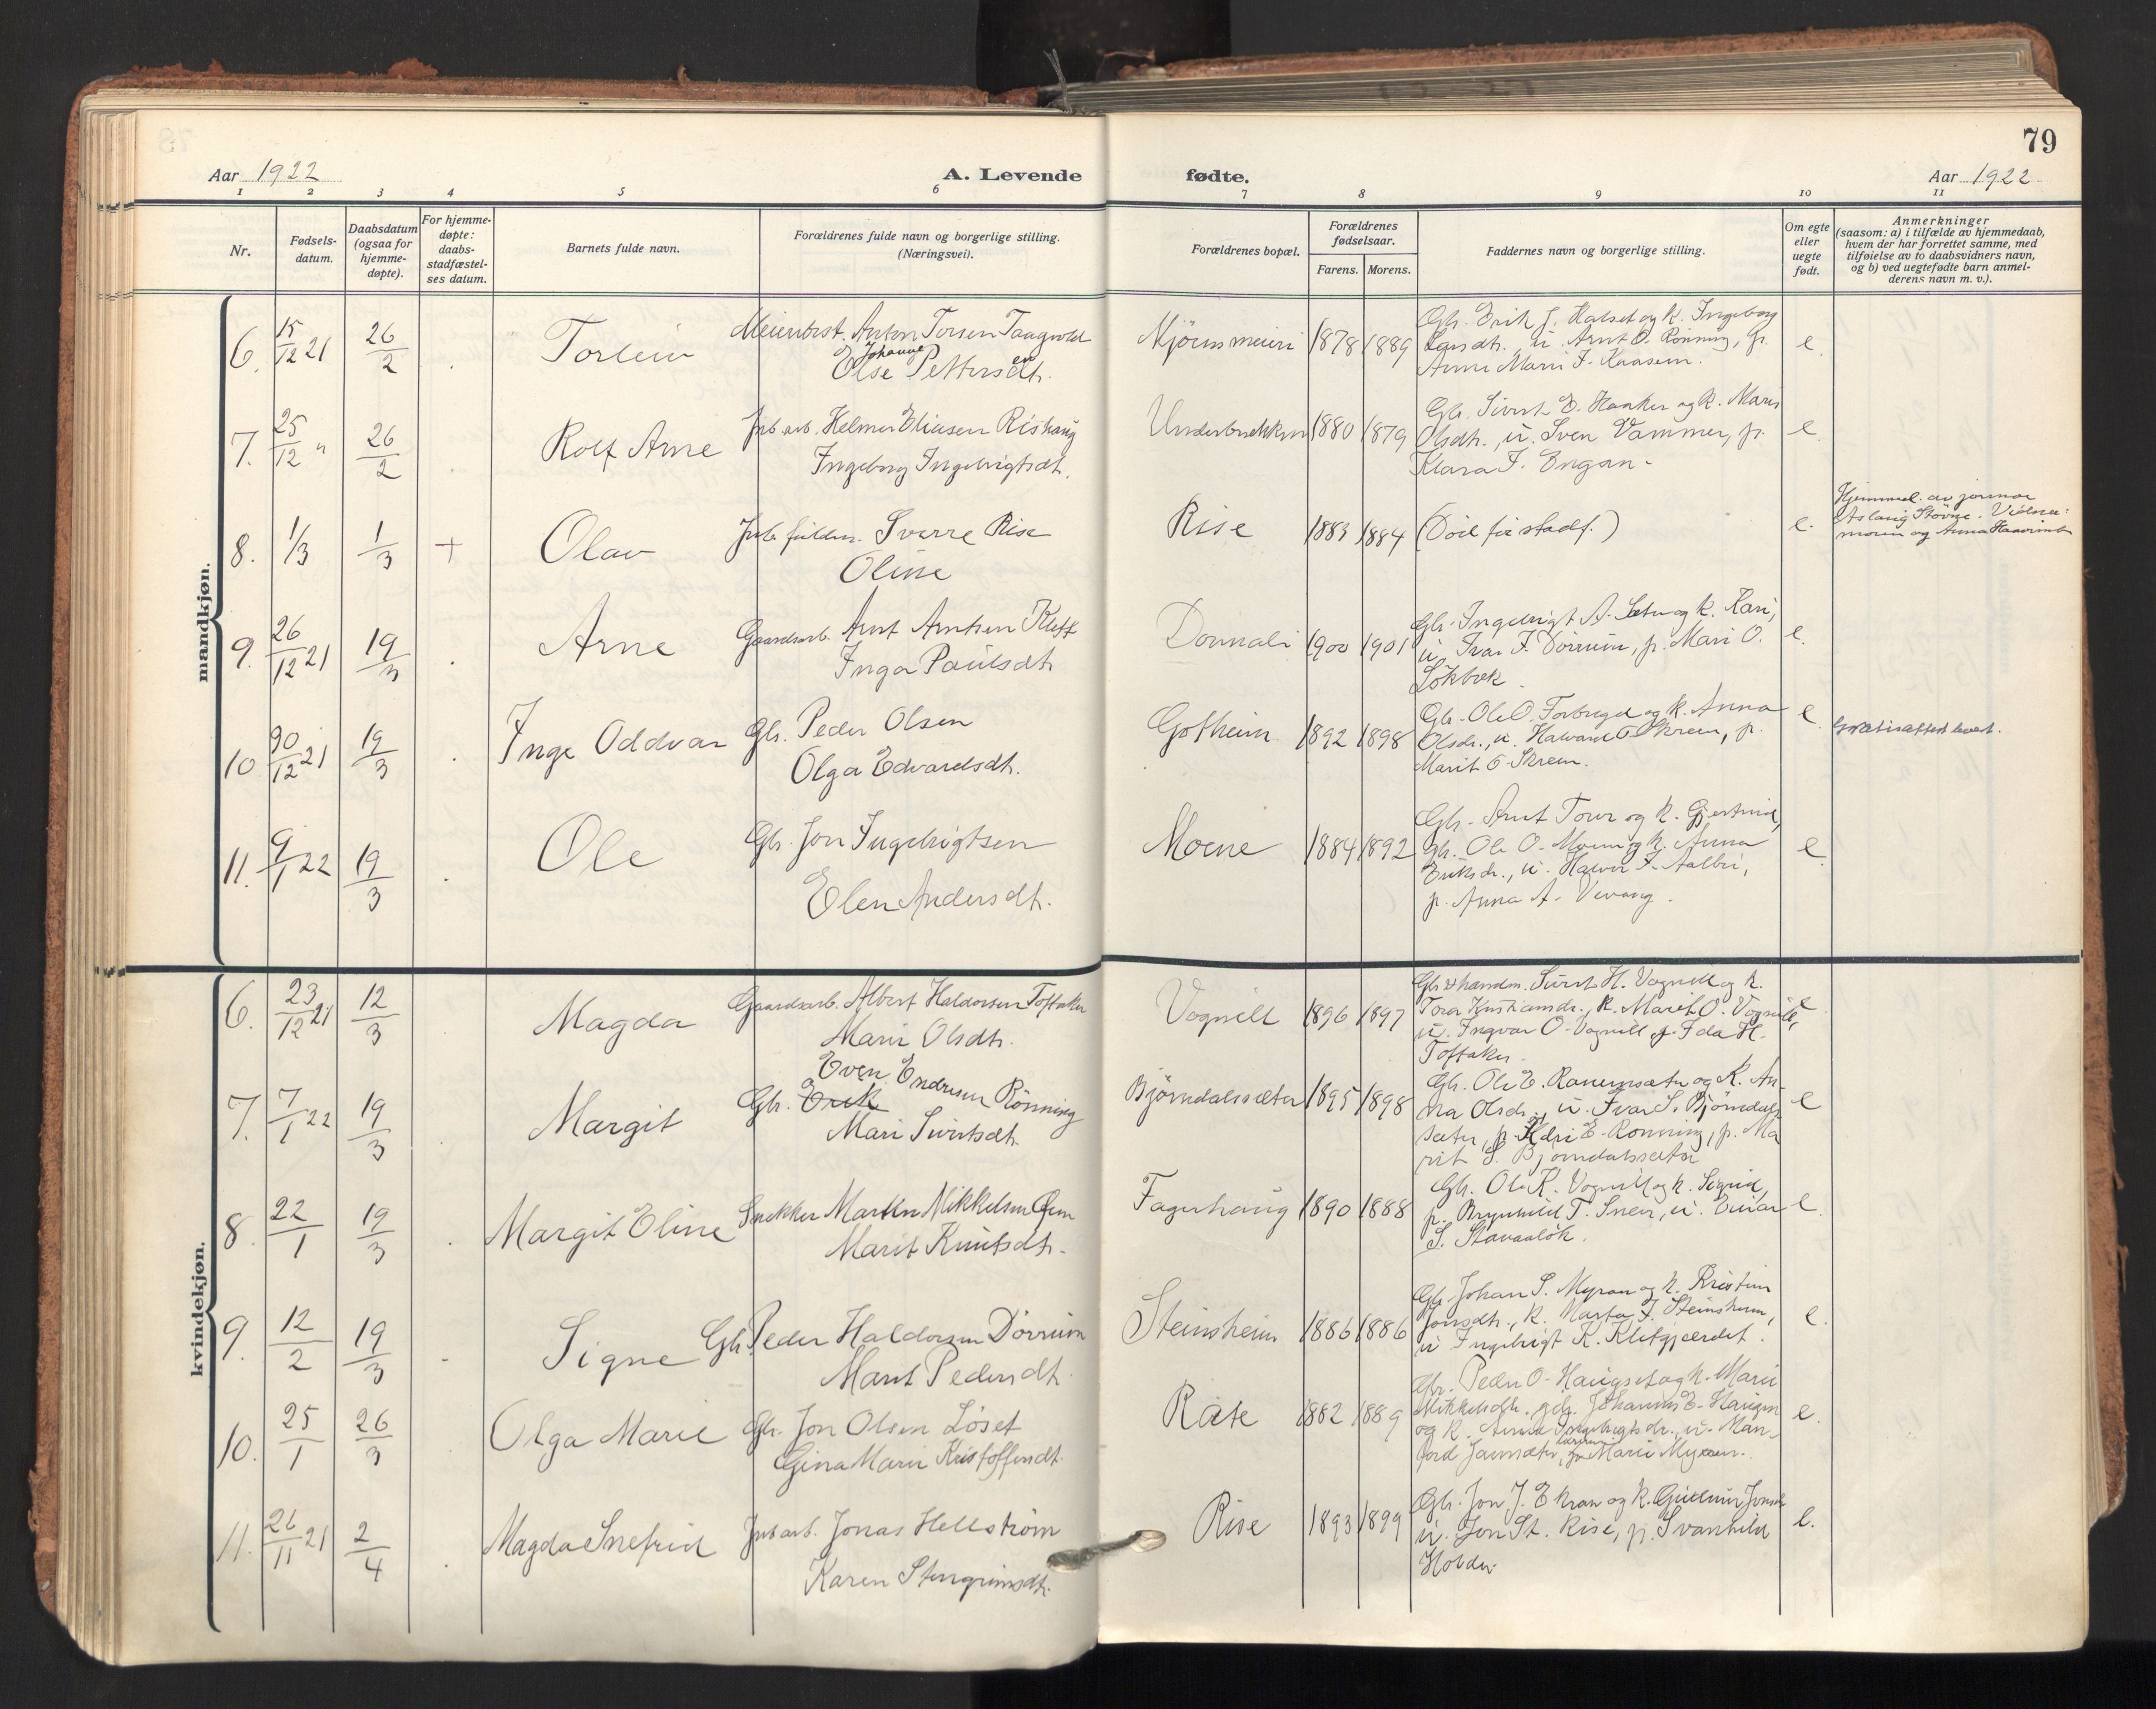 79
Aar 1922
A. Levende
fødte.
Aar 1922
1 2 3 4 5 6 7 8 9 10 11
Nr.
Fødsels-
datum.
Daabsdatum
(ogsaa for
hjemme-
døpte).
For hjemme-
døpte:
daabs-
stadfæstel-
ses datum.
Barnets fulde navn.
Forældrenes fulde navn og borgerlige stilling.
(Næringsvei).
Forældrenes bopæl.
Forældrenes
fødselsaar.
Farens. Morens.
Faddernes navn og borgerlige stilling.
Om egte
eller
uegte
født.
Anmerkninger
(saasom: a) i tilfælde av hjemmedaab,
hvem der har forrettet samme, med
tilføielse av to daabsvidners navn,
og b) ved uegtefødte barn anmel-
derens navn m. v.).
mandkjøn.
6. 15/12 21 26/2 Torleiv
Anton Torsen
Johanne
Else Pettersdt.
1878 1889
Gbr. Erik J. Halset og k. Ingeborg
Larsdt., u. Arnt O. Rønning, p.
Anne Marie J. Kaasen.
e.
7. 25/12 " 26/2 Rolf Arne
Jnb. arb. Helmer Eliasen Rishaug
Ingeborg Ingebrigtsdt.
1880 1879
Gbr. Sivert E. Haaker og k. Marie
Olsdt., u. Sven Vammer, p.
Klara J. Engan.
e.
8. 1/3 1/3 + Olav
Sverre Rise
Oline
Rise 1883 1884
(Död før stadf.)
e.
Hjemmed. av jormor
Aslaug Støvne. Vidner:
moren og Anna
9. 26/12 21 19/3 Arne
Gaardsarb. Arnt Arntsen Kleft
Inga Paulsdt.
Donnali 1900 1901
Gbr. Ingebrigt A. Seter og k. Kari,
u. Ivar F. Dörrum, p. Mari O.
Lökbæk.
e.
10 30/12 21 19/3 Inge Oddvar
Gbr. Peder Olsen
Olga Edvardsdt.
Gotheim 1892 1898
Gbr. Ole O. Forbregd og k. Anna
Olsdr., u. Halvard O. Skrem, p.
Marit O. Skrem.
e.
Gratisattest levert.
11. 9/1 22 19/3 Ole
Gbr. Jon Ingebrigtsen
Elen Andersdt.
Moene 1884 1892
Gbr. Arnt Tour og k. Gjertrud,
Gbr. Ole O. Moene og k. Anna
Eriksdr., u. Halvor J. Aalbu,
p. Anna A. Vevang.
e.
kvindekjøn.
6. 23/12 21 12/3 Magda
Gaardsarb. Albert Haldorsen Toftaker
Mari Olsdt.
Vognill 1896 1897
Gbr & handm. Sivert H. Vognill og k.
Tora Kristiansdr., k. Marit O. Vognill,
u. Ingvar O. Vognill, p. Ida H.
Toftaker.
e
7. 7/1 22 19/3 Margit
Even Endresen Rönning
Gbr. Erik
Mari Sivertsdt.
Björndalssæter 1895 1898
Gbr. Ole E. Ranemsæter og k. An-
na Olsdr., u. Ivar S. Björndals-
sæter, p. Kari E. Rönning, p. Ma
rit S. Björndalssæter
e
8. 22/1 19/3 Margit Eline
Snekker Martin Mikkelsen
Marit Knutsdt.
Fagerhaug 1890 1888
Gbr. Ole K. Vognill og k. Sigrid,
p. Brynhild T. Sneve, u. Einar
S. Stavaalök.
e.
9. 12/2 19/3 Signe
Gbr. Peder Haldorsen Dörrum
Marit Pedersdt.
Steinsheim 1886 1886
Gbr. Johan S. Myran og k. Kristine
Jonsdt., k. Marta J. Steinsheim,
u Ingebrigt K. Kletgjærdet.
e.
10. 25/1 26/3 Olga Marie
Gbr. Jon Olsen Löset
Gina Marie Kristoffersdt.
Räte 1882 1889
Gbr. Peder O. Haugset og k. Marie
Mikkelsdt., gdg. Johannes E. Haugen
og k. Ingebrigtsdr., u. Man-
ford Jamsæter, Marie Myren.
e.
11. 26/11 21 2/4 Magda Snefrid
Jnb arb. Jonas Hellström
Karen Stengrimsdt.
Rise 1893 1899
Gbr. Jon J. Ekran og k. Gudrun
u. Jon St. Rise, p. Svanhild
Holder.
e.